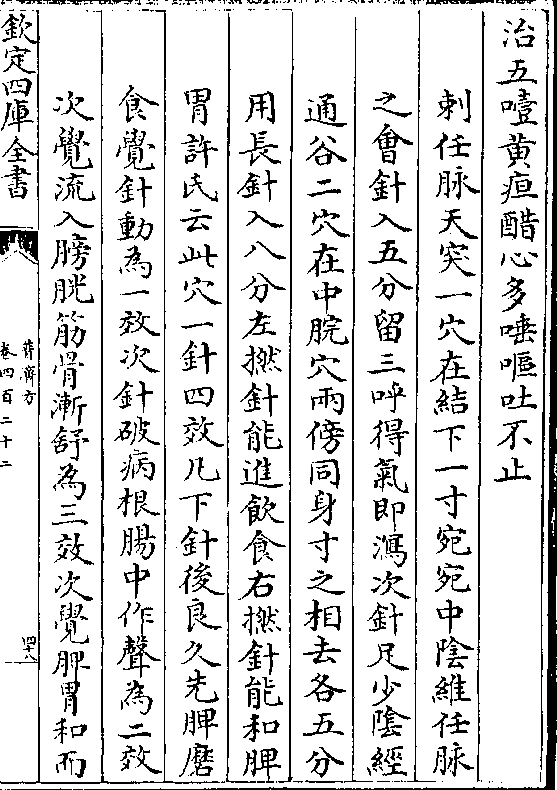 治五噎黄疸醋心多唾嘔吐不止
刺任脉天突一穴在結下一寸宛宛中陰維任脉
之會針入五分留三呼得氣即瀉次針足少陰經
通谷二穴在中脘穴兩傍同身寸之相去各五分
用長針入八分左撚針能進飲食右撚針能和脾
胃許氏云此穴一針四效凡下針後良久先脾磨
食覺針動為一效次針破病根腸中作聲為二效
次覺流入膀胱筋骨漸舒為三效次覺脾胃和而
欽定四庫全書
普濟方
卷四百二十二
四八